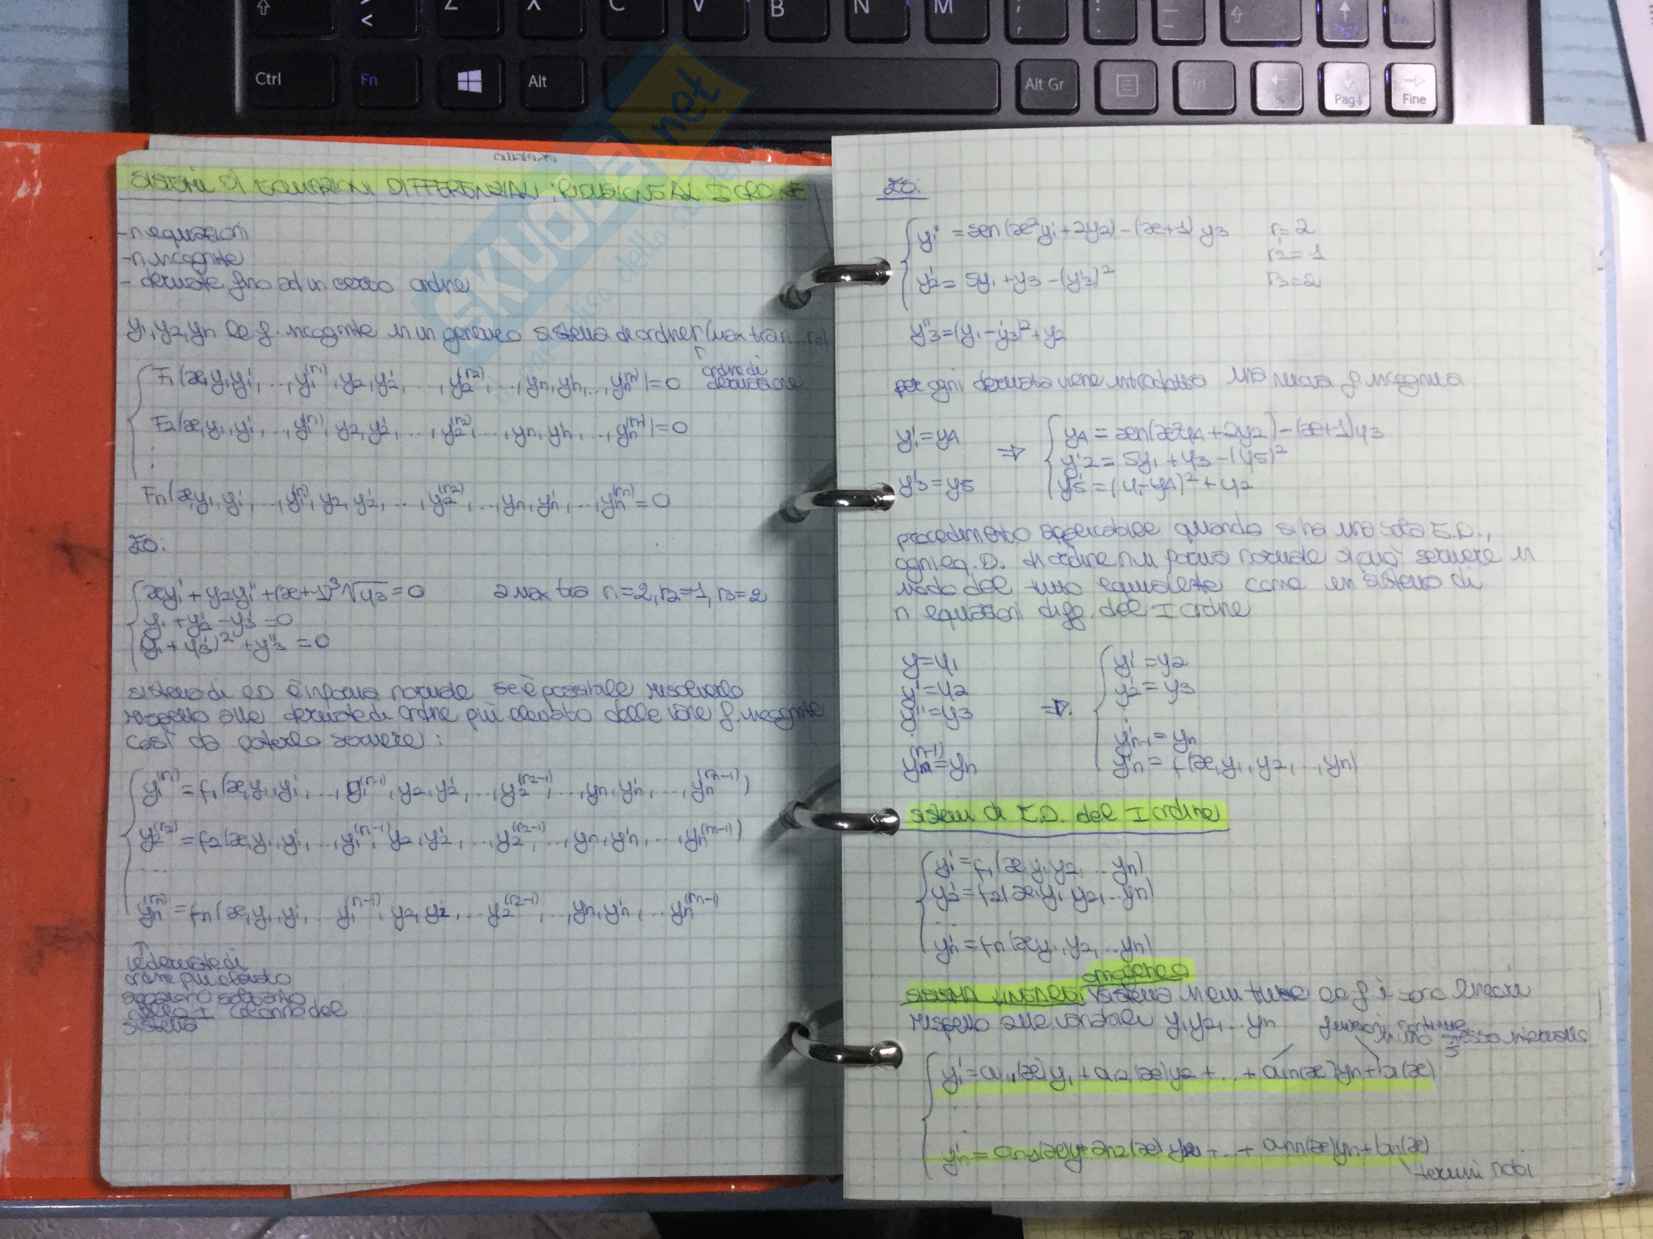 Ctrl
Fn
Alt
Alt Gr
Pag↓
Fine
Z X C V B N M
SKUOLA.net
SISTEMI DI EQUAZIONI DIFFERENZIALI: RIDUCIONE AL I ORDINE
-n equazioni
-n incognite
- derivate fino ad un certo ordine
y1, y2, yn le f. incognite in un generico sistema di ordine r (max tra r1...rn)
ordine di
derivazione
F1(x,y1,y1', ...,y1^(r1), y2,y2', ..., y2^(r2), ..., yn,yn', ..., yn^(rn))=0
F2(x,y1,y1', ...,y1^(r1), y2,y2', ..., y2^(r2), ..., yn,yn', ..., yn^(rn))=0
Fn(x,y1,y1', ...,y1^(r1), y2,y2', ..., y2^(r2), ..., yn,yn', ..., yn^(rn))=0
ES:
xy1' + y2y1'' + (x+1)^3 √y3 = 0 2 max tra r1=2, r2=1, r3=2
y1 + y2' - y3' = 0
(y1 + y3')^2 + y3'' = 0
sistema di ED è in forma normale se è possibile risolverlo
rispetto alle derivate di ordine più elevato delle varie f. incognite
così da poterlo scrivere:
y1^(r1) = f1(x,y1,y1', ..., y1^(r1-1), y2,y2', ..., y2^(r2-1), ..., yn,yn', ..., yn^(rn-1))
y2^(r2) = f2(x,y1,y1', ..., y1^(r1-1), y2,y2', ..., y2^(r2-1), ..., yn,yn', ..., yn^(rn-1))
...
yn^(rn) = fn(x,y1,y1', ... y1^(r1-1), y2,y2', ... y2^(r2-1), ..., yn,yn', ... yn^(rn-1))
le derivate di
ordine più elevato
appaiono soltanto
nella I colonna del
sistema
ES:
y1'' = sen(x²y1' + 2y2) - (x+1) y3 r1=2
r2=1
y2' = 5y1 + y3 - (y3')² r3=2
y3'' = (y1 - y3')² + y2
per ogni derivata viene introdotta una nuova f. incognita
y1' = y4 ⇒ y4' = sen(x²y4 + 2y2) - (x+1)y3
y2' = 5y1 + y3 - (y5)²
y3' = y5 y5' = (y1 - y4)² + y2
procedimento applicabile quando si ha una sola E.D.,
ogni eq. D. di ordine n in forma normale si può scrivere in
modo del tutto equivalente come un sistema di
n equazioni diff. del I ordine
y = y1 y1' = y2
y' = y2 y2' = y3
y'' = y3 ⇒
y'n-1 = yn
y^(n-1) = yn y'n = f(x,y1,y2, ..., yn)
sistemi di E.D. del I ordine
y1' = f1(x,y1,y2, ... yn)
y2' = f2(x,y1,y2, ... yn)
yn' = fn(x,y1,y2, ... yn)
omogeneo
SISTEMI LINEARI: sistema in cui tutte le f i sono lineari
rispetto alle variabili y1,y2, ... yn funzioni continue
in uno stesso intervallo
y1' = a11(x)y1 + a12(x)y2 + ... + a1n(x)yn + b1(x)
yn' = an1(x)y1 + an2(x)y2 + ... + ann(x)yn + bn(x)
termini noti